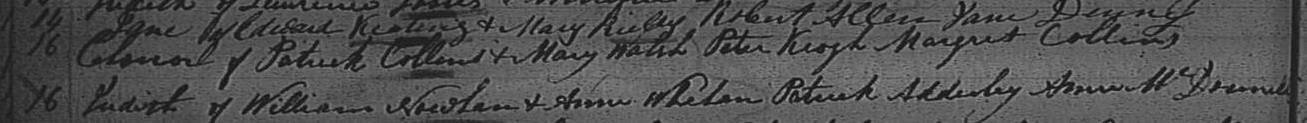 Judith of Lawrence
14 Jane of Edward Keating & Mary Rielly Robert Allen Jane Denny
16 Elonor of Patrick Collins & Mary Walsh Peter Keogh Margret Collins
16 Judith of William Nowlan & Anne Whelan Patrick Adderley Anne McDonnell